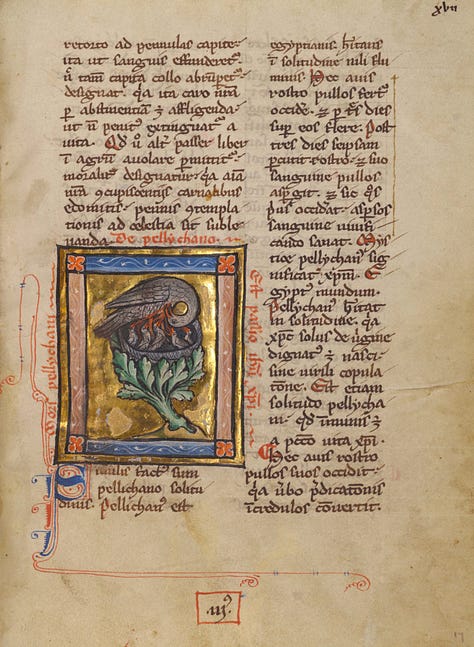 xvii
retorto ad pennulas capite
ita ut sanguis effunderet᷑
ñ tam̃ capita collo abrupet᷑
designat᷑. q̃a ita caro nr̃a
p̱ abstinentiã ⁊ affligenda
ut ñ penit᷒ extinguat᷑ a
uita. Qd̃ ũ alt᷑ passer liber
ĩ agrũ auolare pmittit᷑
designatur
ꝯcupiscentiis carnalibus
edomitis pennis ꝯtempla
tionis ad celestia sit suble
uanda. De pellychano
Similis fact᷒ sum
pellichano solitu
dinis. Pellichan᷒ est
egyptiani. hĩtans
ĩ solitudine nili flu
minis. Hec auis
rostro pullos
occide. ⁊ p̱ t̃s dies
sup̱ eos flere. Post
tres dies seipsam
pcutit rostro. ⁊ suo
sanguine pullos
asp̱git. ⁊ sic q̃s
pus᷒ occidat. asp̱sos
sanguine uiuifi
cando sanat. Mys
tice pellychan᷒ sig
nificat xp̃m. E
gypt᷒ mundum.
Pellychan᷒ hĩtat
in solitudine. q̃a
xp̃c solus de uirgine
dignat᷒ ẽ nasci
sine uirili copula
tione. Est etiam
solitudo pellycha
ni. qd̃ ĩmunis ẽ
a pctõ uita xp̃i.
Hec auis rostro
pullos suos occidit
q̃a ũbo p̃dicationis
ĩcredulos conuertit.
.iii᷒.
17